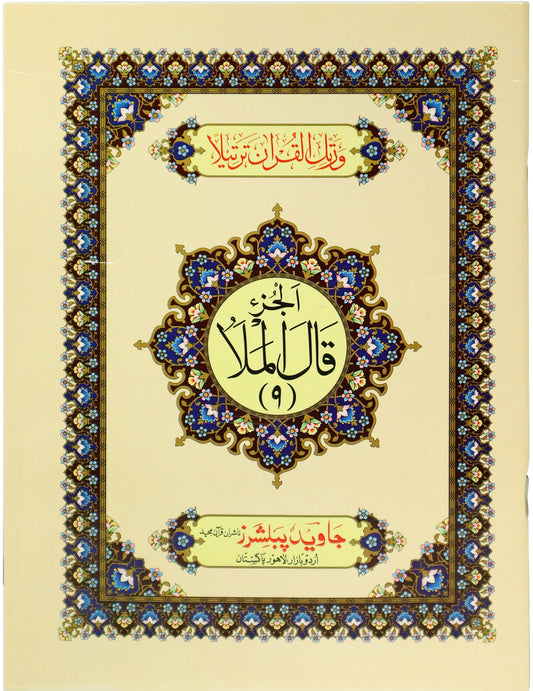 ورتل القرآن ترتيلا
الجزء
قال الملأ
(٩)
جاوید پبلشرز ناشران قرآن مجید
اردو بازار لاھور پاکستان